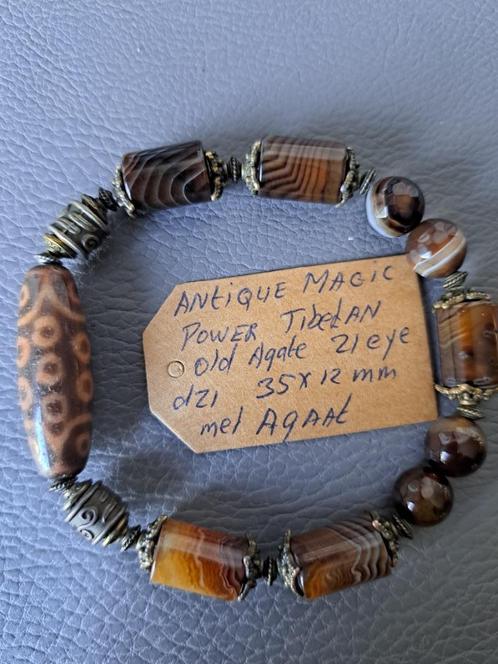 ANTIQUE MAGIC
POWER TibetAN
Old Agate 21 eye
dZI 35 X 12 mm
met AgAAt